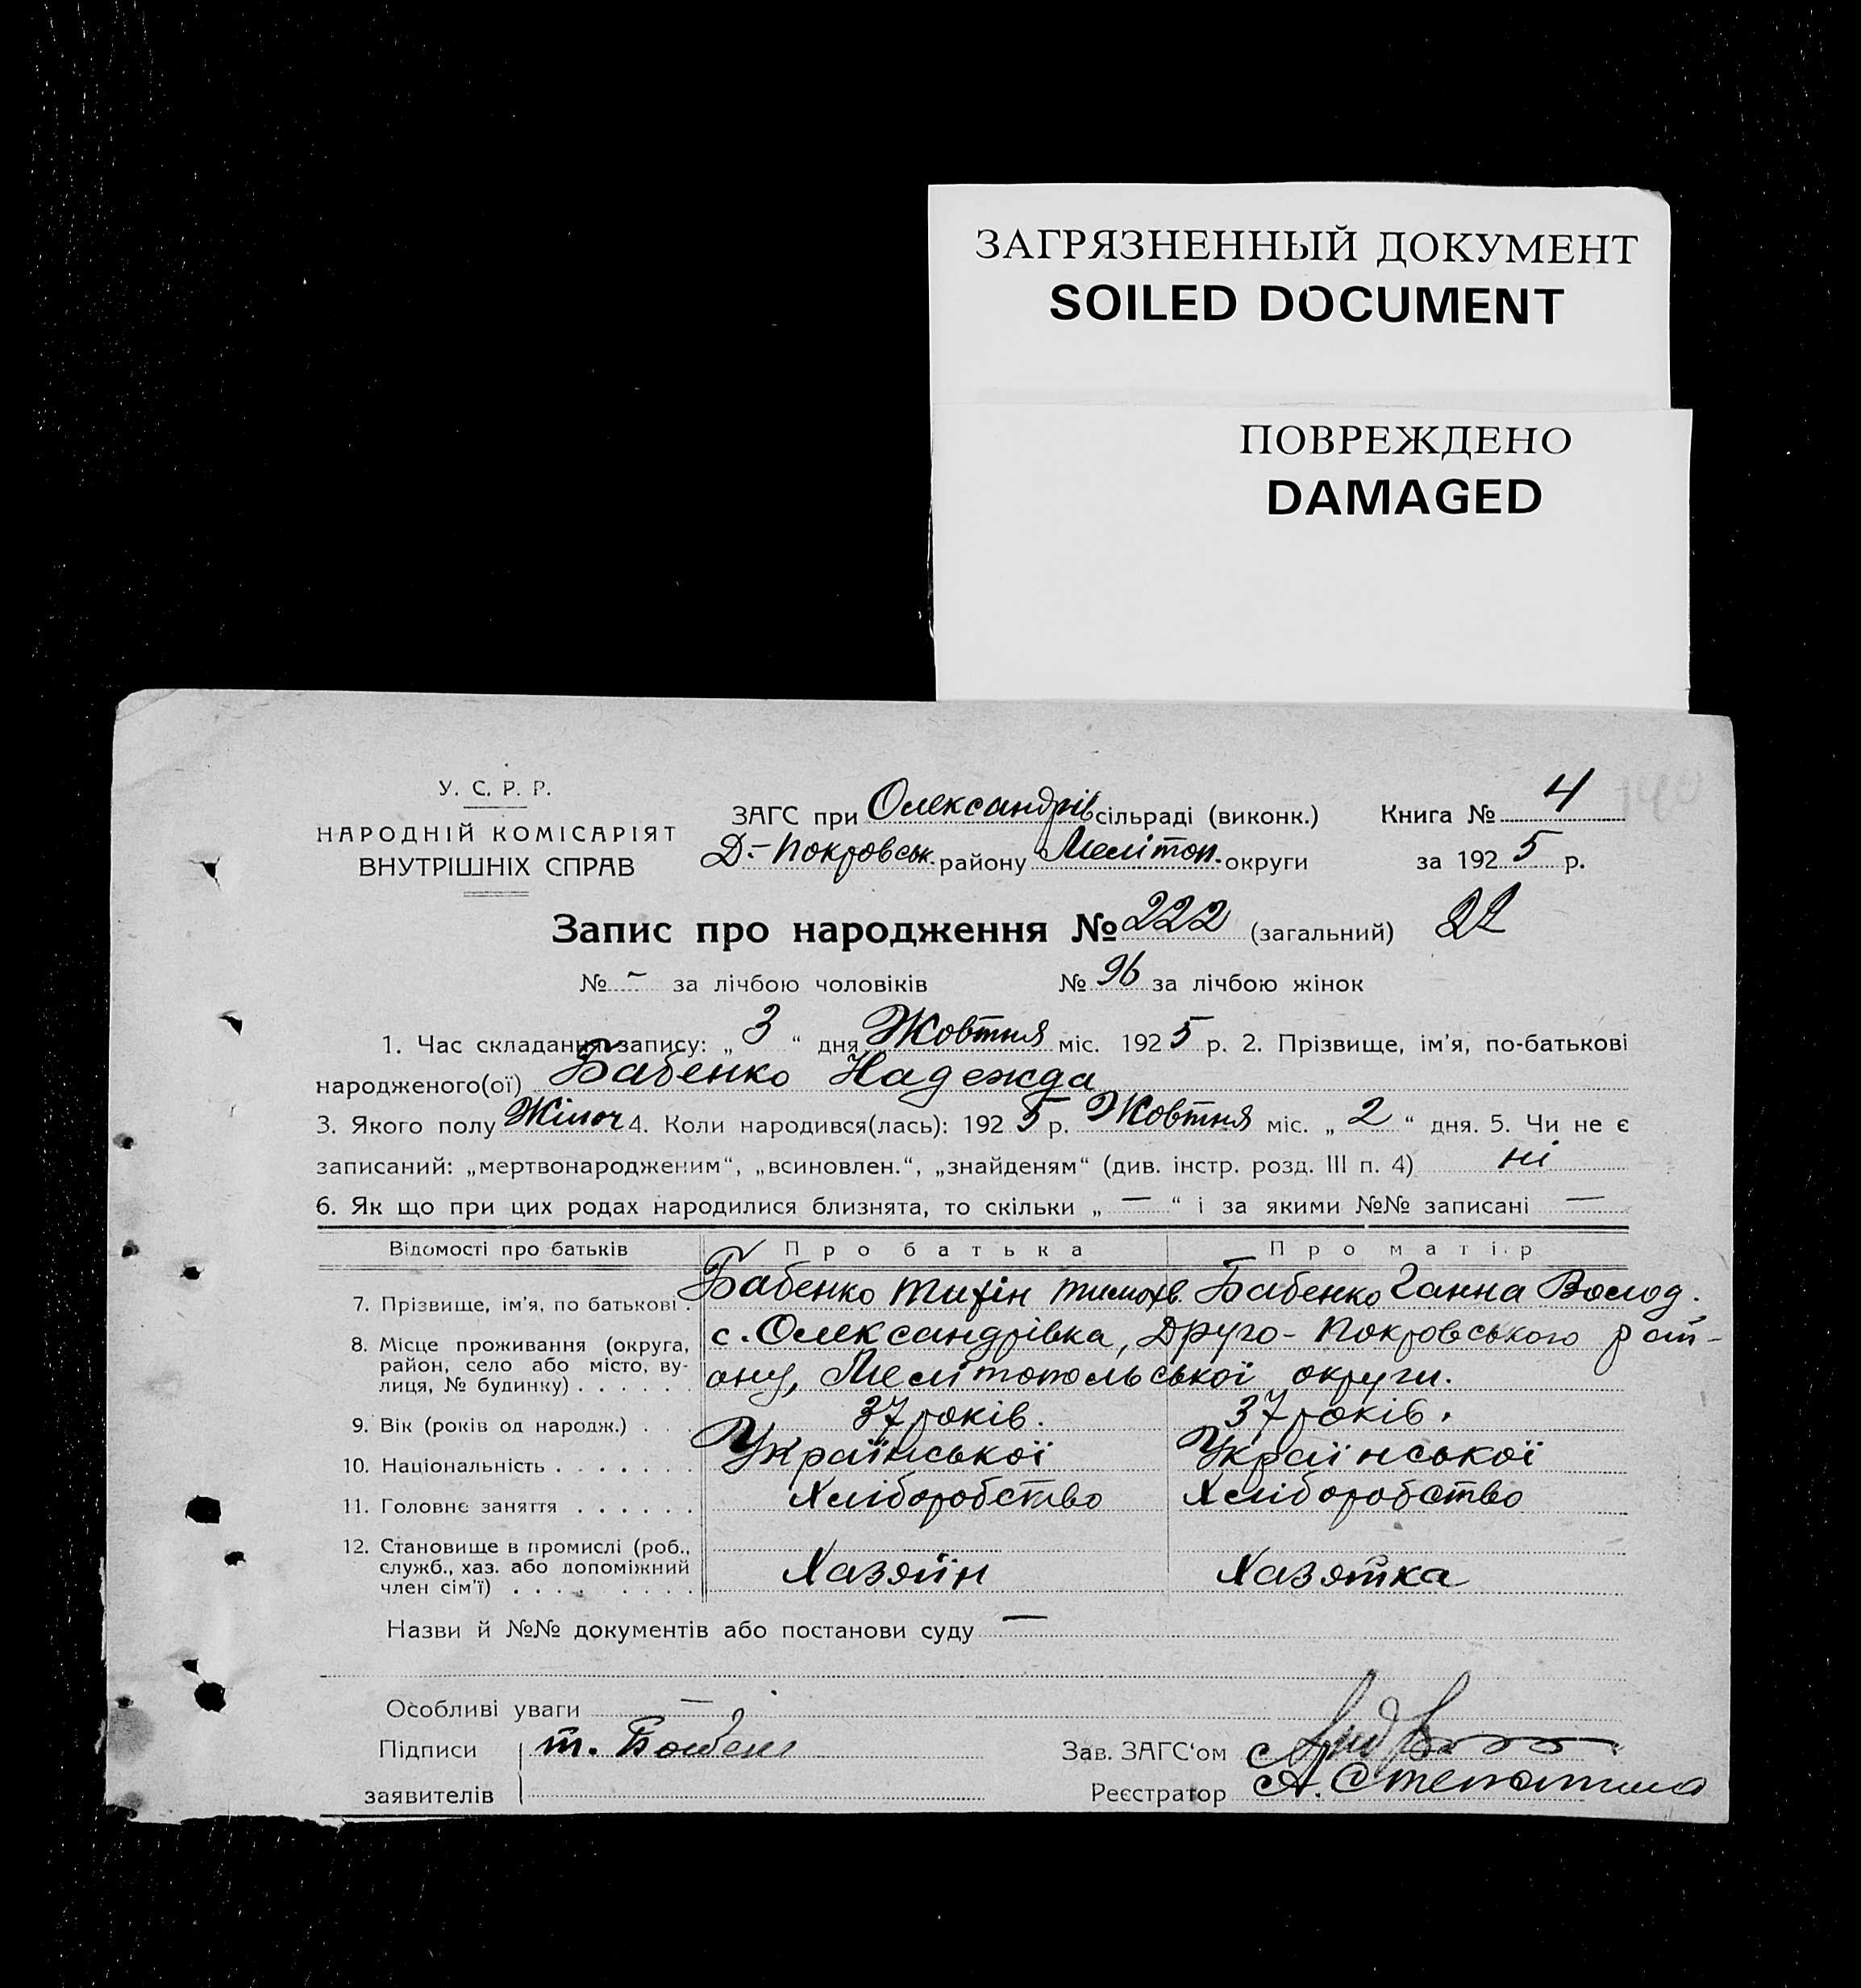 ЗАГРЯЗНЕННЫЙ ДОКУМЕНТ
SOILED DOCUMENT
ПОВРЕЖДЕНО
DAMAGED
У. С. Р. Р.
НАРОДНІЙ КОМІСАРІЯТ
ВНУТРІШНІХ СПРАВ
ЗАГС при Олександрів сільраді (виконк.)
Д.-Покровськ. району Мелітоп. округи
Книга № 4
за 1925 р.
Запис про народження № 222 (загальний) 22
№ - за лічбою чоловіків № 96 за лічбою жінок
1. Час складання запису: „ 3 “ дня Жовтня міс. 1925 р. 2. Прізвище, ім'я, по-батькові
народженого(ої) Бабенко Надежда
3. Якого полу Жіноч 4. Коли народився(лась): 1925 р. Жовтня міс. „ 2 “ дня. 5. Чи не є
записаний: „мертвонародженим“, „всиновлен.“, „знайденям“ (див. інстр. розд. III п. 4) ні
6. Як що при цих родах народилися близнята, то скільки „ — “ і за якими №№ записані —
Відомості про батьків Про батька Про матір
7. Прізвище, ім'я, по батькові. Бабенко Тимохв. Бабенко Ганна Волод.
8. Місце проживання (округа, район, село або місто, вулиця, № будинку) . . . . . .
с. Олександрівка, Друго-Покровського рай-
ону, Мелітопольської округи.
9. Вік (років од народж.) . . 37 років. 37 років.
10. Національність . . . . . . . Української Української
11. Головнє заняття . . . . . . Хліборобство Хліборобство
12. Становище в промислі (роб.,
служб., хаз. або допоміжний
член сім'ї) . . . . . . . . . Хазяїн Хазяйка
Назви й №№ документів або постанови суду —
Особливі уваги —
Підписи т. Зав. ЗАГС'ом
заявителів Реєстратор А.